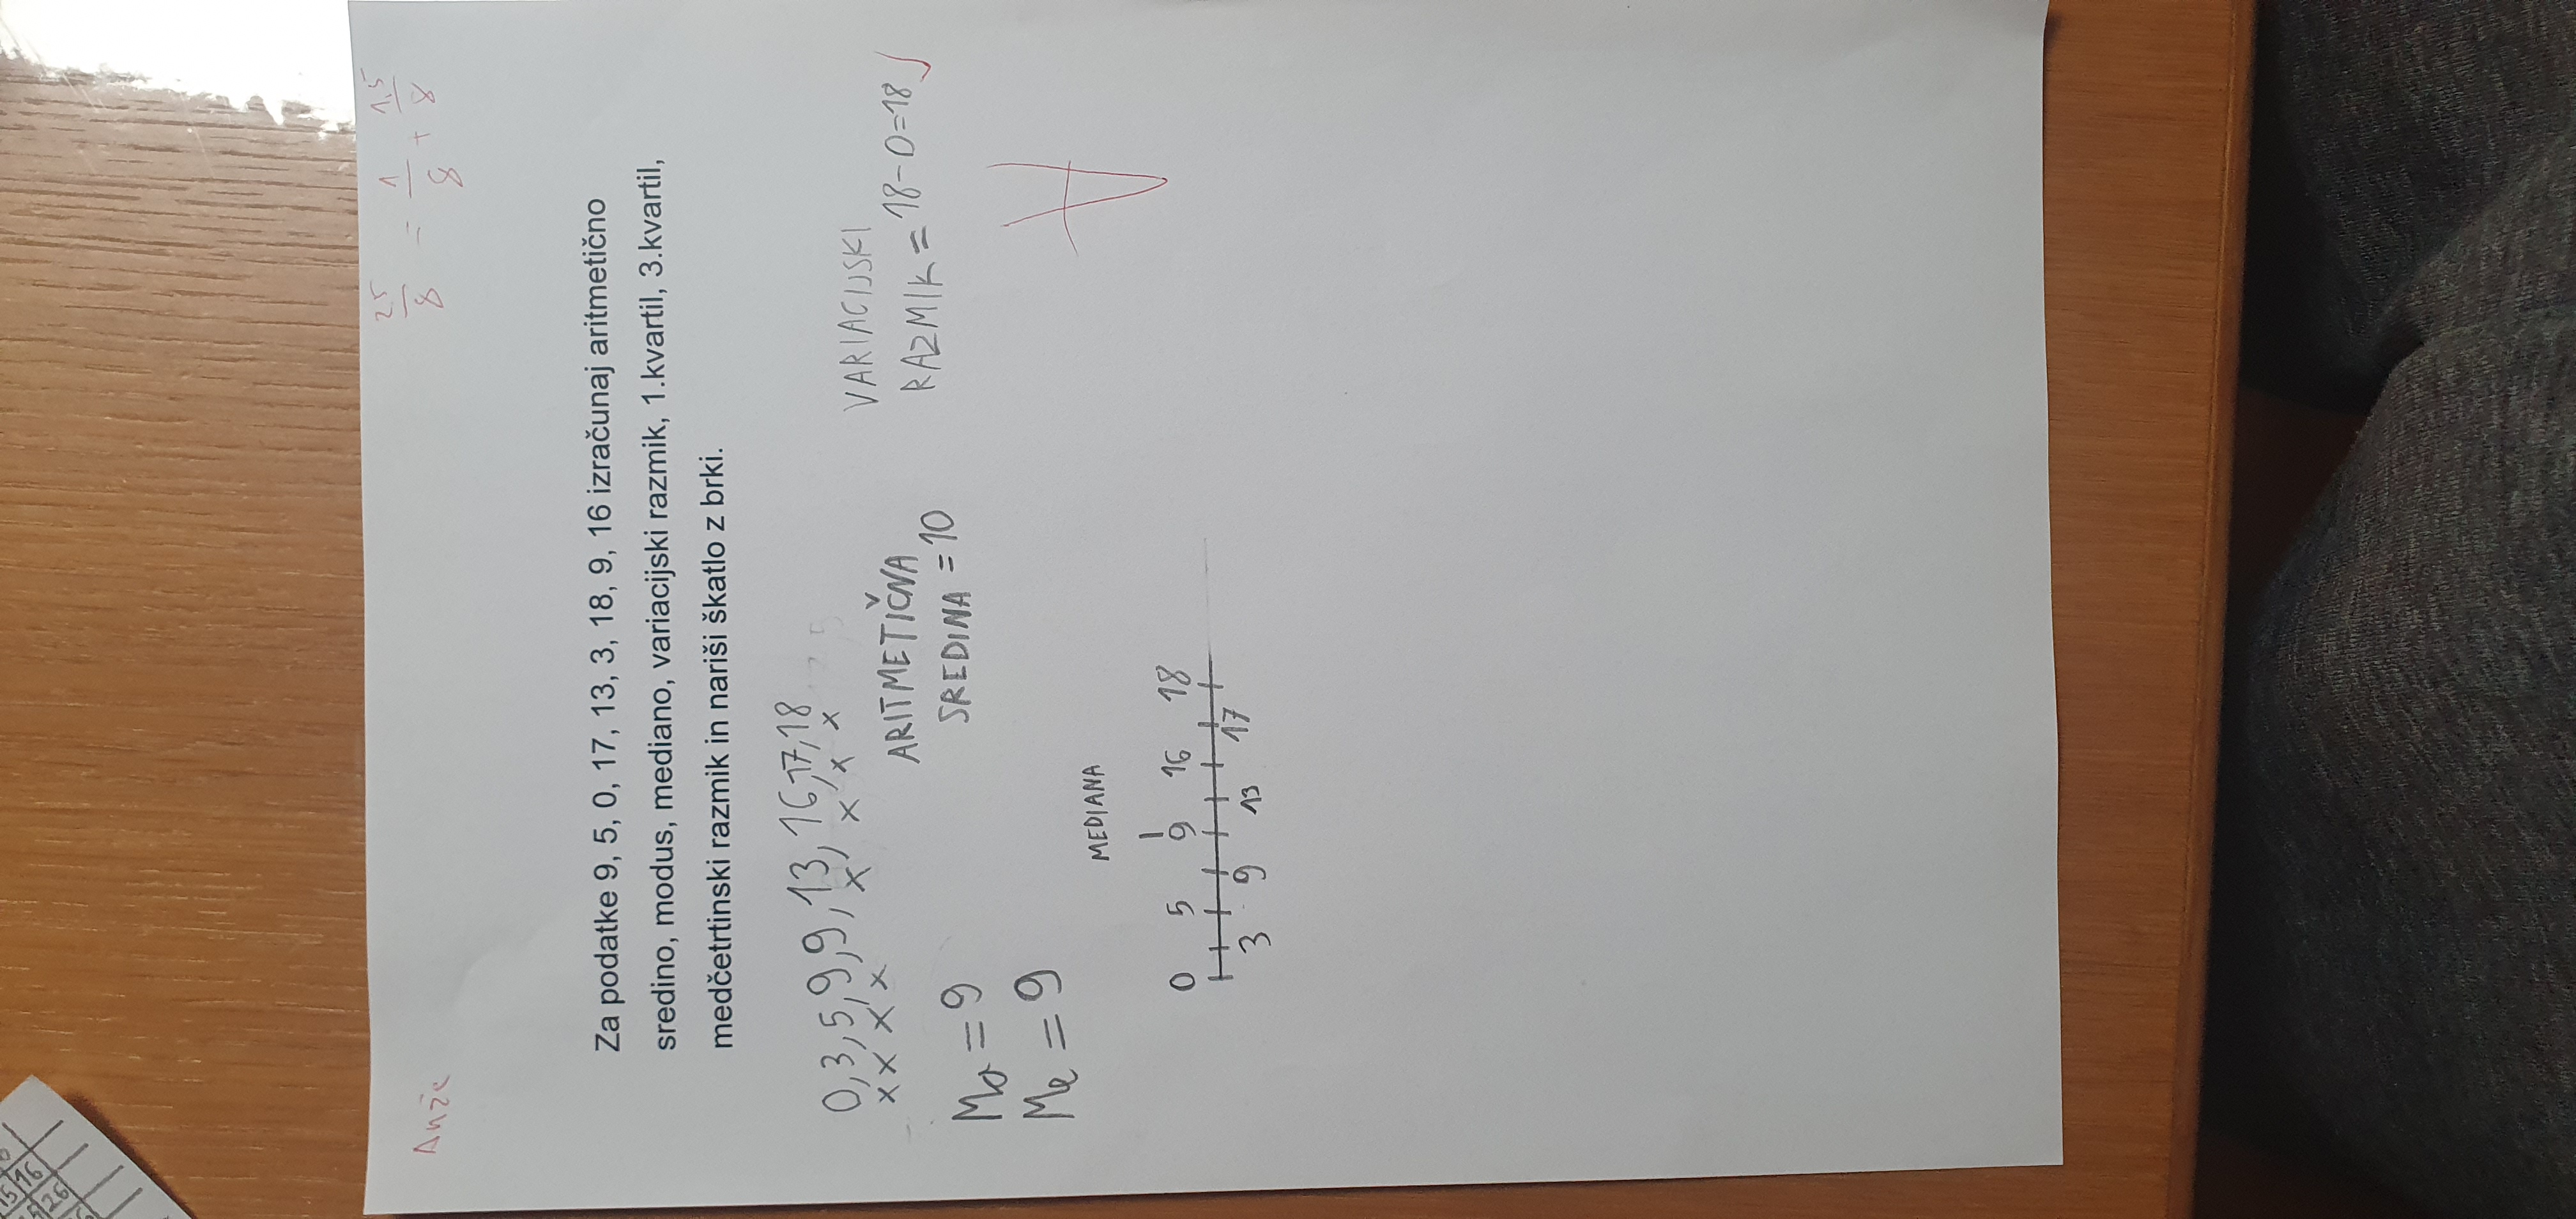 15 16
26
Anže
2,5/8 = 1/8 + 1,5/8
Za podatke 9, 5, 0, 17, 13, 3, 18, 9, 16 izračunaj aritmetično
sredino, modus, mediano, variacijski razmik, 1.kvartil, 3.kvartil,
medčetrtinski razmik in nariši škatlo z brki.
0, 3, 5, 9, 9, 13, 16, 17, 18
x x x x x x x x
ARITMETIČNA
SREDINA = 10
VARIACIJSKI
RAZMIK = 18-0=18
Mo = 9
Me = 9
MEDIANA
0 5 9 16 18
3 9 13 17